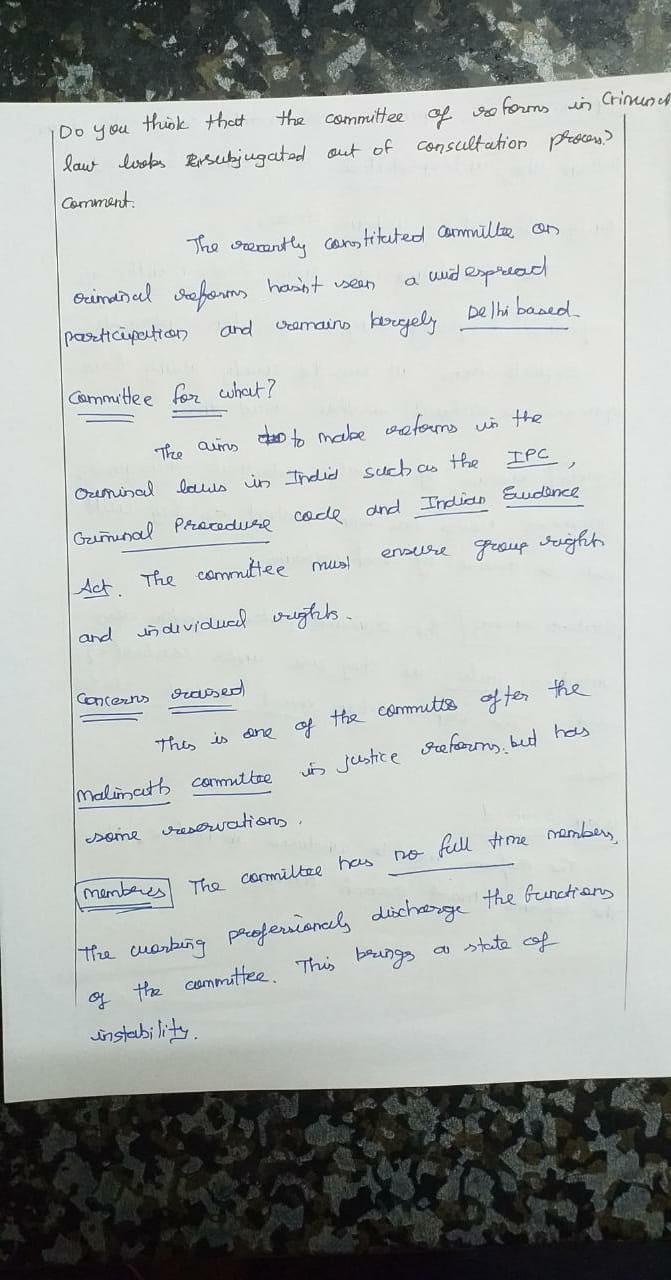 Do you think that the committee of reforms in Criminal
law looks subjugated out of consultation process?
Comment.
The recently constituted committee on
criminal reforms hasn't seen a widespread
participation and remains largely Delhi based.
Committee for what?
The aims to make reforms in the
criminal laws in India such as the IPC,
Criminal Procedure code and Indian Evidence
Act. The committee must ensure group rights
and individual rights.
Concerns raised
This is one of the committs after the
Malimath committee in justice reforms, but has
some reservations.
Members The committee has no full time members,
The working professionals discharge the functions
of the committee. This brings a state of
instability.